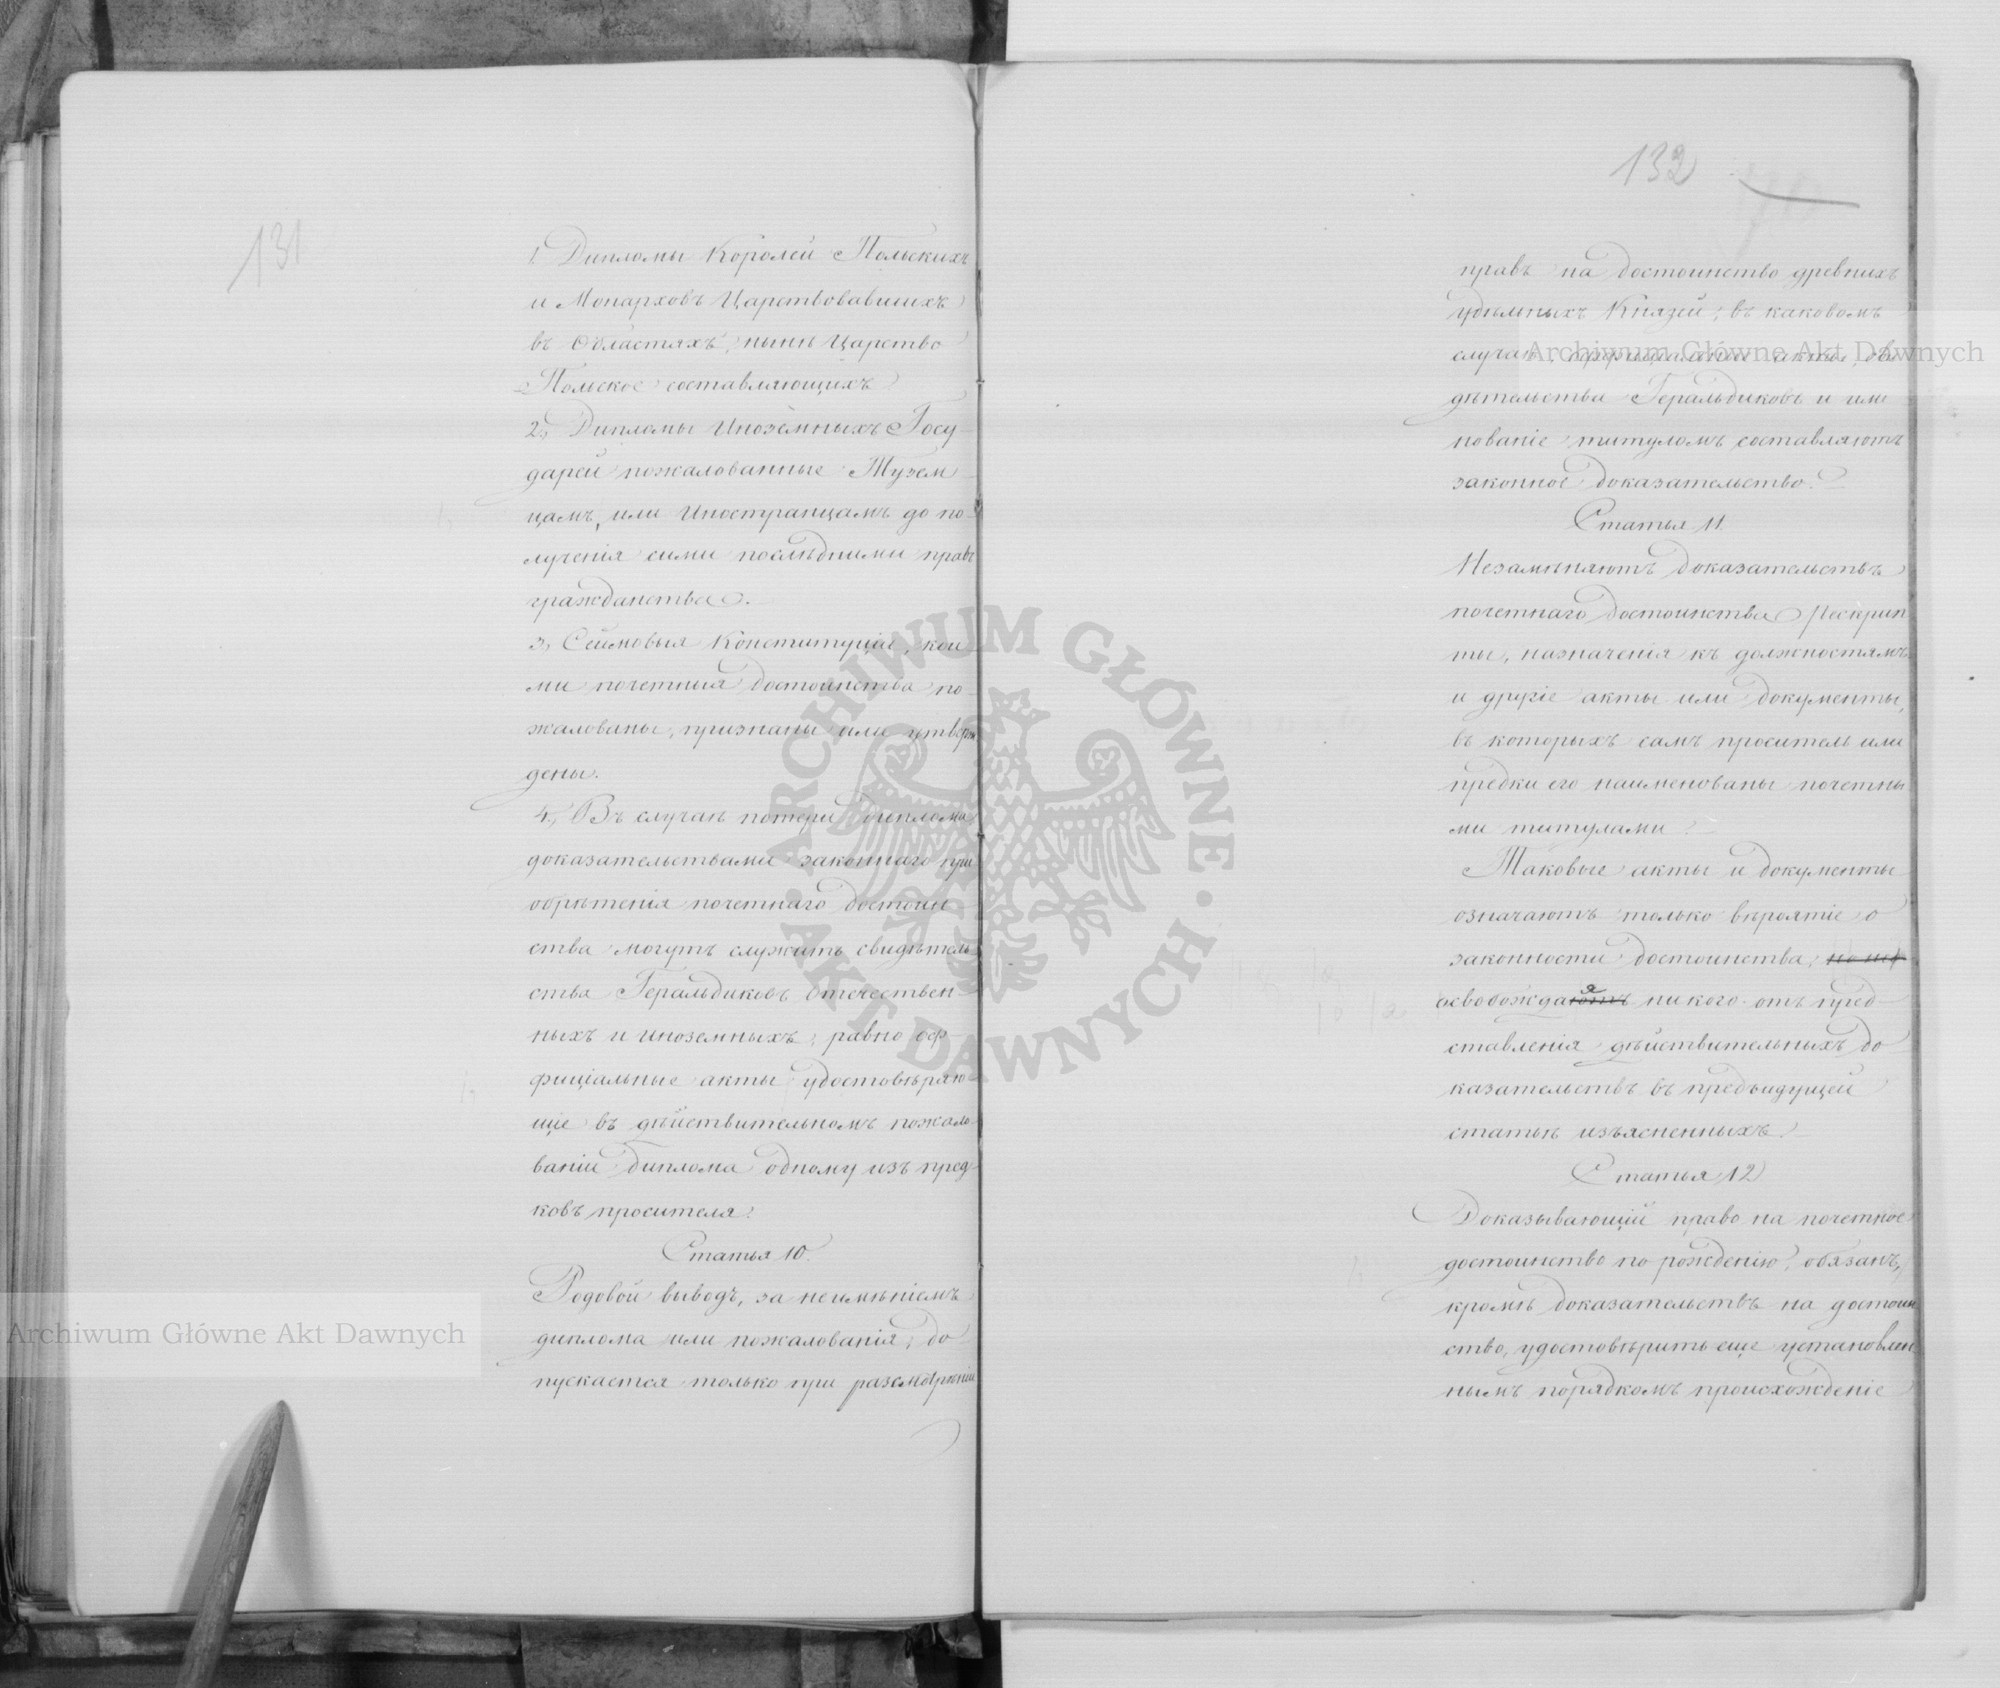 131
1. Дипломы Королей Польскихъ
и Монарховъ Царствовавшихъ
въ Областяхъ, нынѣ Царство
Польское составляющихъ
2, Дипломы Иноземныхъ Госу
дарей пожалованные Тузем
цамъ, или Иностранцамъ до по-
лученія сими послѣдними правъ
гражданства.
3, Сеймовыя Конституціи, кои
ми почетныя достоинства по-
жалованы, признаны или утверж
дены.
4, Въ случаѣ потери диплома
доказательствами законнаго при
обрѣтенія почетнаго достоин
ства могутъ служить свидѣтель
ства Геральдиковъ отечествен-
ныхъ и иноземныхъ, равно оф-
фиціальные акты удостовѣряю
щіе въ дѣйствительномъ пожало
ваніи диплома одному изъ пред
ковъ просителя.
Статья 10.
Родовой выводъ, за неимѣніемъ
диплома или пожалованія, до
пускается только при разсмотрѣніи
132
правъ на достоинство древнихъ
удѣльныхъ Князей, въ каковомъ
случаѣ оффиціальные акты, сви
дѣтельства Геральдиковъ и име
нованіе титуломъ составляютъ
законное доказательство.
Статья 11
Незамѣняютъ доказательствъ
почетнаго достоинства Рескрип
ты, назначенія къ должностямъ
и другіе акты или документы,
въ которыхъ самъ проситель или
предки его наименованы почетны
ми титулами.
Таковые акты и документы
означаютъ только вѣроятіе о
законности достоинства,
освобождая никого отъ пред-
ставленія дѣйствительныхъ до
казательствъ въ предъидущей
статьѣ изъясненныхъ.
Статья 12
Доказывающій право на почетное
достоинство по рожденію, обязанъ,
кромѣ доказательствъ на достоин
ство, удостовѣрить еще установлен
нымъ порядкомъ происхожденіе
Archiwum Główne Akt Dawnych
Archiwum Główne Akt Dawnych
ARCHIWUM GŁÓWNE · AKT DAWNYCH ·